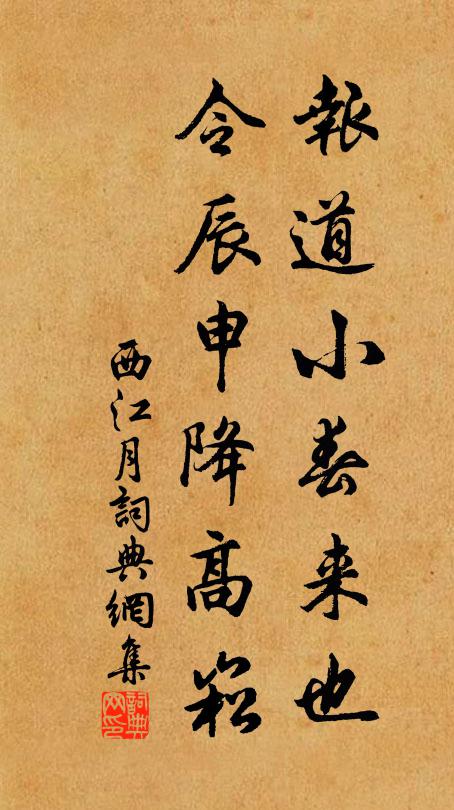 報道小春来也
令辰申降高崧
西江月詞典網集
詞典
网印